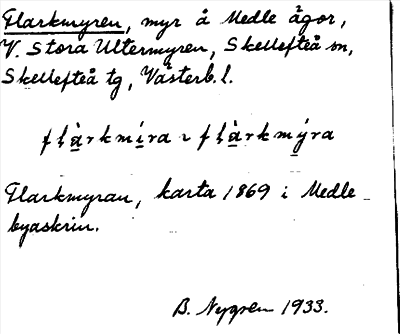 Flarkmyren, myr å Medle ägor,
V. Stora Ultermyren, Skellefteå sn,
Skellefteå tg, Västerb. l.
flàrkmíra ~ flàrkmýra
Flarkmyran, karta 1869 i Medle
byaskrin.
B. Nygren 1933.